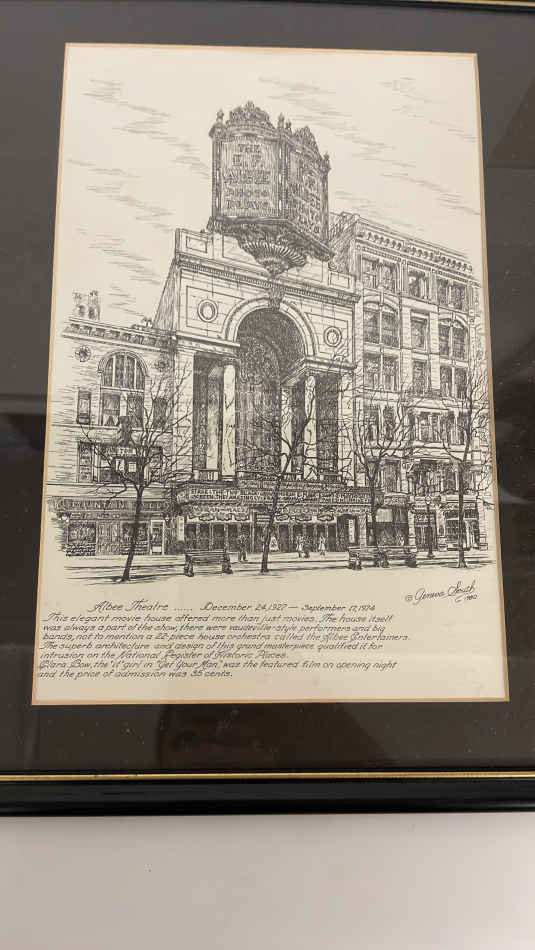 THE
E. F.
ALBEE
© Geneva South
1980
Albee Theatre ...... December 24, 1927 — September 17, 1974
This elegant movie house offered more than just movies. The house itself
was always a part of the show, there were vaudeville-style performers and big
bands, not to mention a 22-piece house orchestra called the Albee Entertainers.
The superb architecture and design of this grand masterpiece qualified it for
intrusion on the National Register of Historic Places.
Clara Bow, the 'it' girl in "Get Your Man," was the featured film on opening night
and the price of admission was 35 cents.